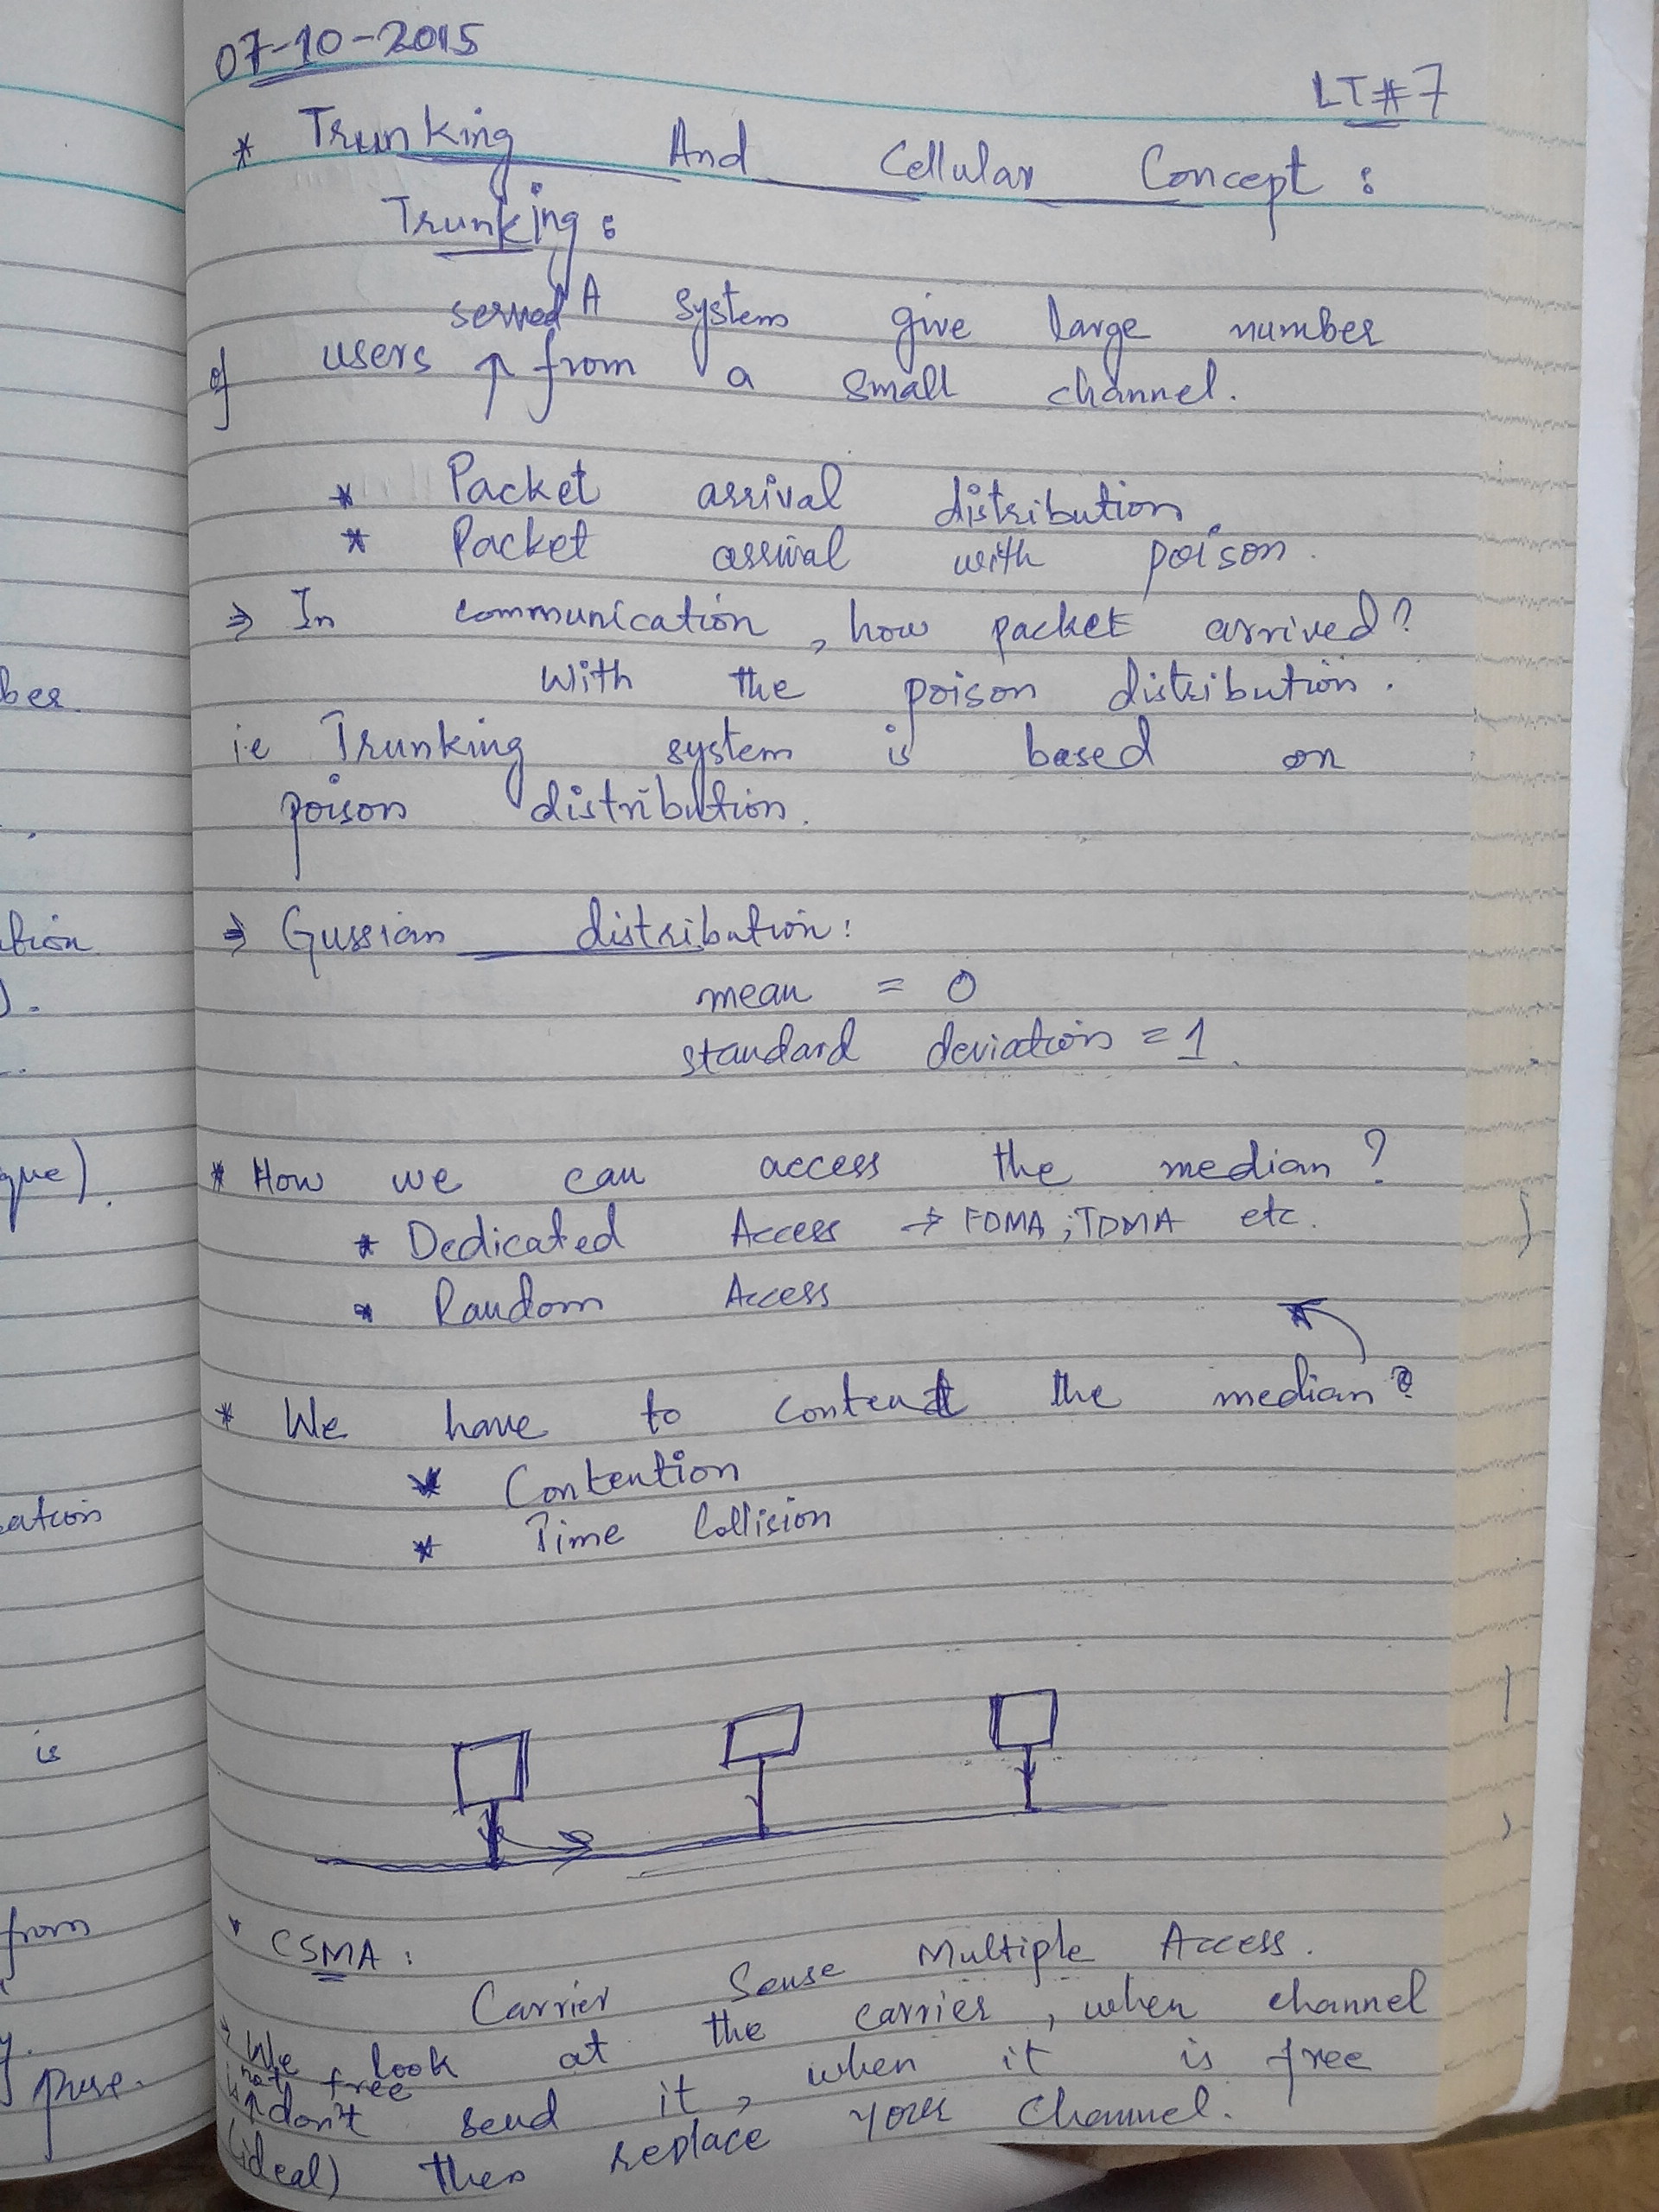 07-10-2015
LT#7
* Trunking And Cellular Concept :
Trunking :
served A system give large number
of users ↑ from a small channel.
* Packet arrival distribution.
* Packet arrival with poison.
⇒ In communication, how packet arrived?
With the poison distribution.
i.e Trunking system is based on
poison distribution.
⇒ Gussian distribution:
mean = 0
standard deviation = 1.
* How we can access the median?
* Dedicated Access → FDMA, TDMA etc.
* Random Access
* We have to content the median?
* Contention
* Time Collision
* CSMA :
Carrier Sense Multiple Access.
→ We look at the carrier, when channel
not free
is ↑ don't send it, when it is free
(ideal) then replace your channel.
ber
ation
que).
ation
is
from
pure.